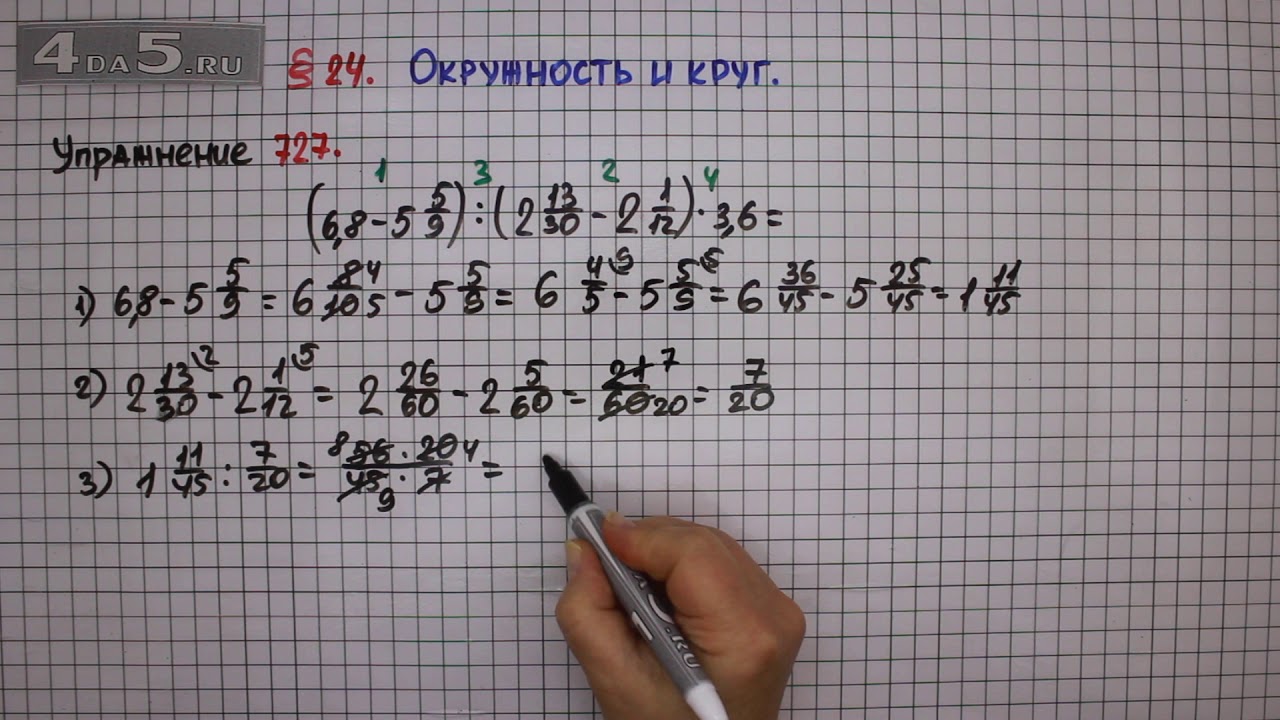 4DA5.RU
§ 24. Окружность и круг.
Упражнение 727.
1 3 2 4
(6,8 - 5 5/9) : (2 13/30 - 2 1/12) · 3,6 =
1) 6,8 - 5 5/9 = 6 8/10 4/5 - 5 5/9 = 6 4/5 \9 - 5 5/9 \5 = 6 36/45 - 5 25/45 = 1 11/45
2) 2 13/30 \2 - 2 1/12 \5 = 2 26/60 - 2 5/60 = 21/60 7/20 = 7/20
3) 1 11/45 : 7/20 = 8 56 · 20 4 / 45 9 · 7 =
5.RU